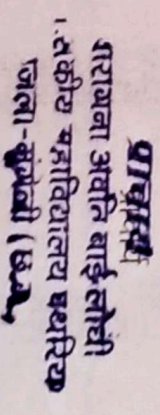 प्राचार्य
अवंति बाई लोधी
महाविद्यालय पथरिया
जिला-मुंगेली (छ.ग.